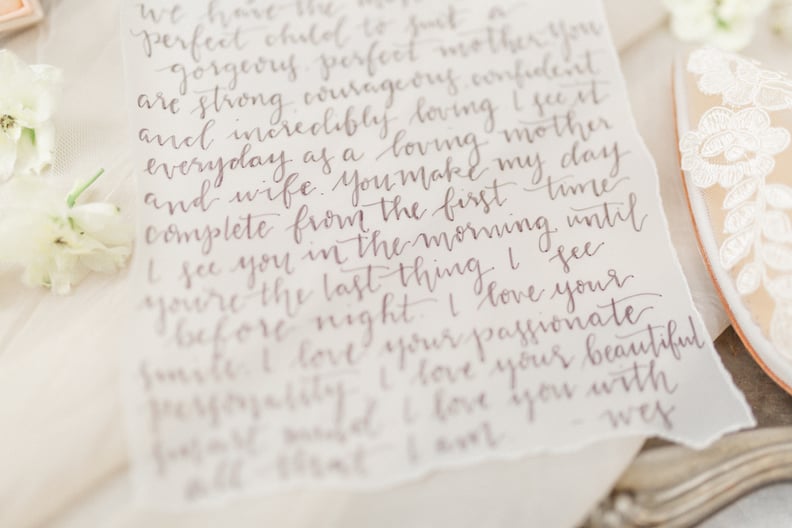 we have the
perfect child to suit a
gorgeous. perfect mother. You
are strong. courageous. confident
and incredibly loving. I see it
everyday as a loving mother
and wife. You make my day
complete from the first time
I see you in the morning until
you're the last thing I see
before night. I love your
smile. I love your passionate
personality. I love your beautiful
smart mind. I love you with
all that I am. - wes